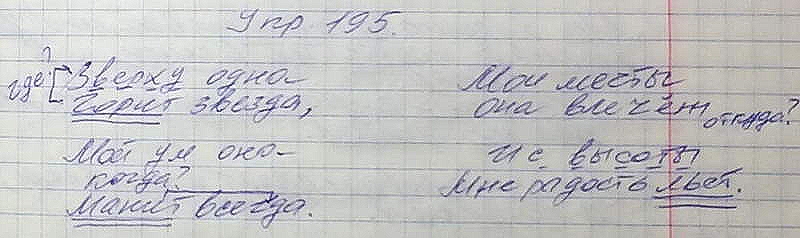 Упр 195.
где?
Вверху одна
Горит звезда,
Мой ум она
когда?
Манит всегда.
Мои мечты
она влечёт
откуда?
И с высоты
Мне радость льёт.